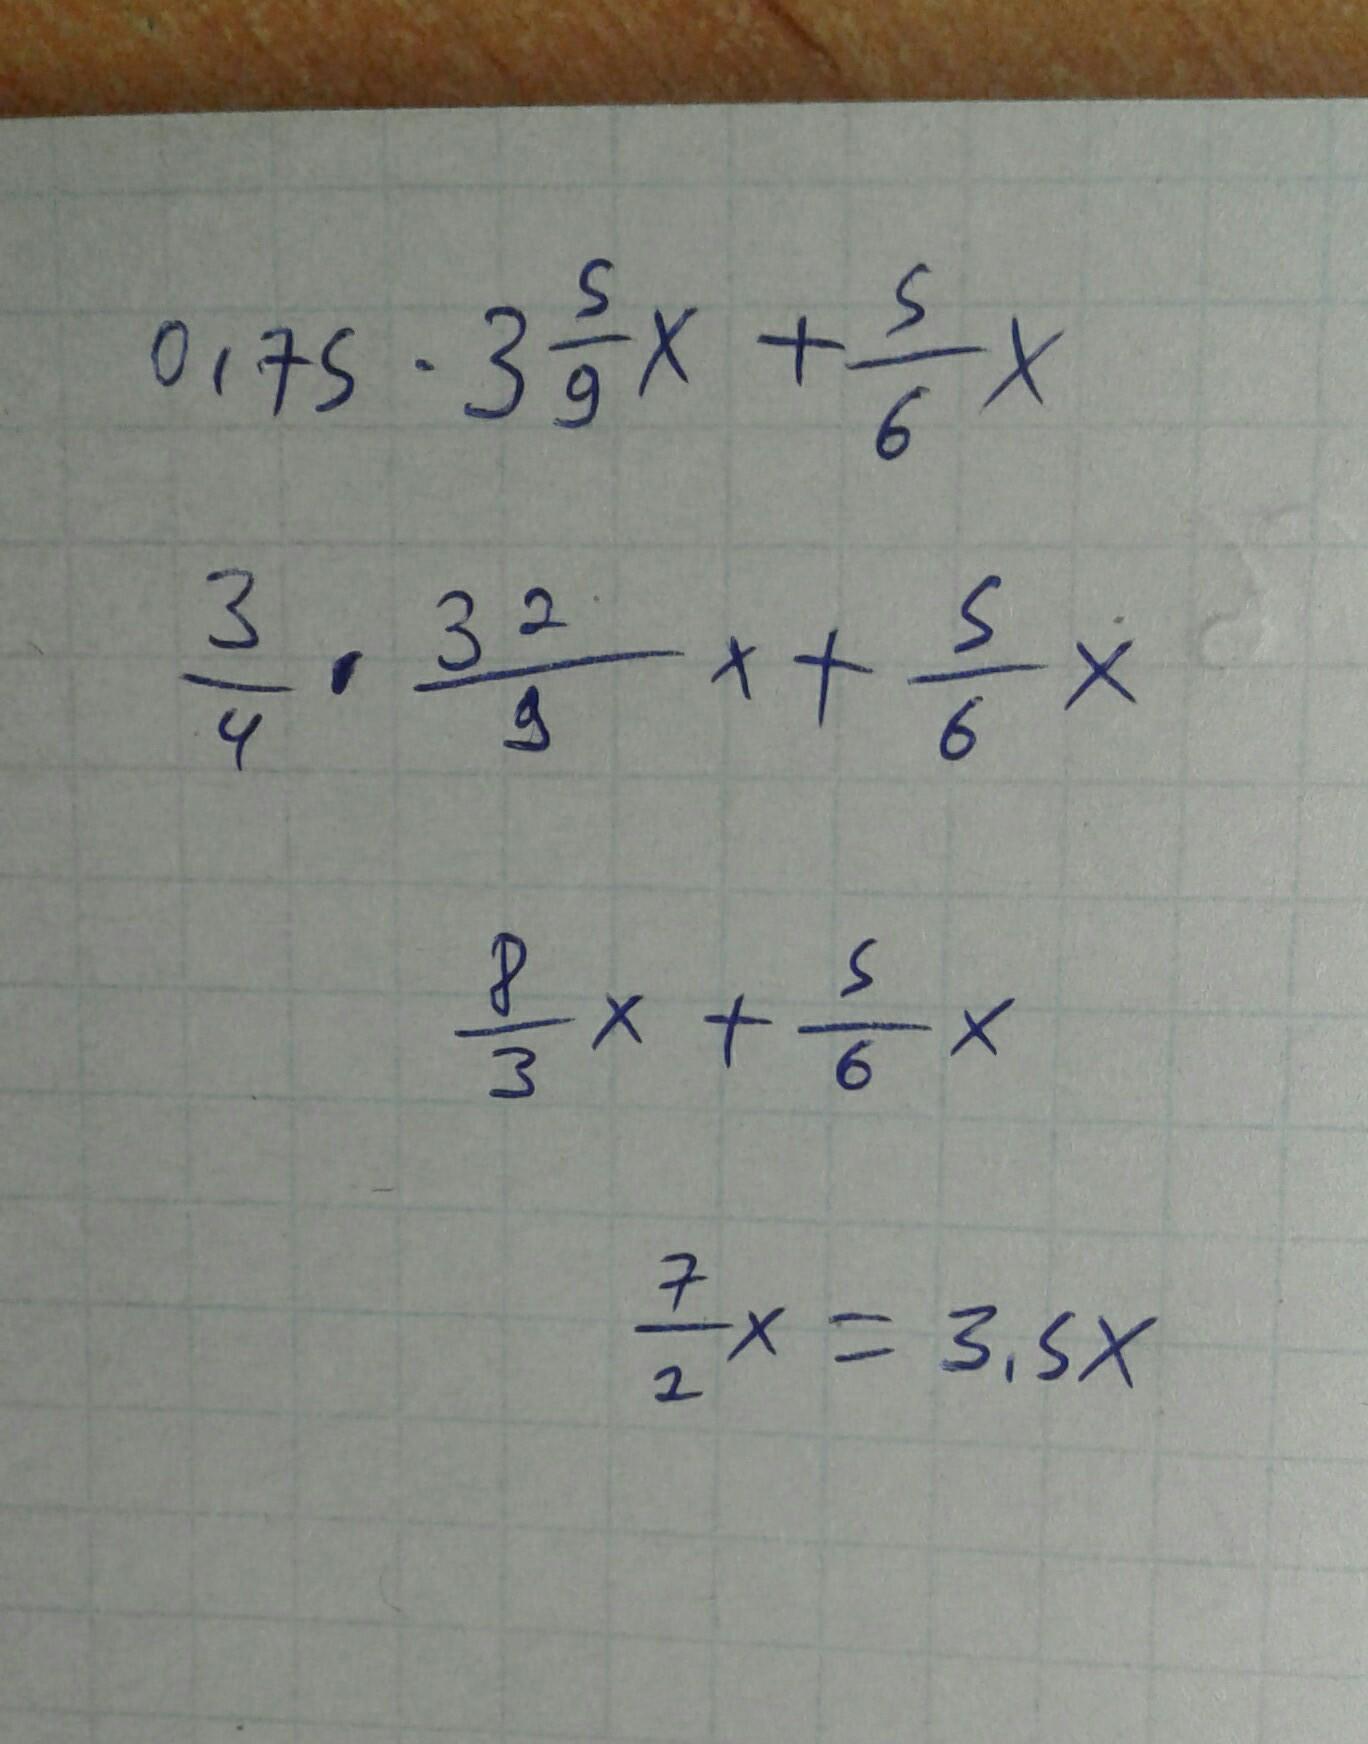 0,75 · 3 5/9 x + 5/6 x
3/4 · 32/9 x + 5/6 x
8/3 x + 5/6 x
7/2 x = 3,5x